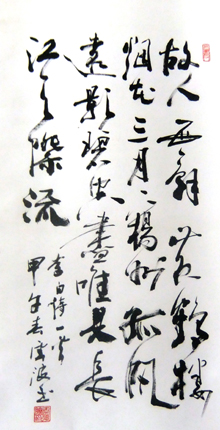 故人西辭黄鶴樓
烟花三月下揚州孤帆
遠影碧空盡唯見長
江天際流
李白詩一首
甲午春